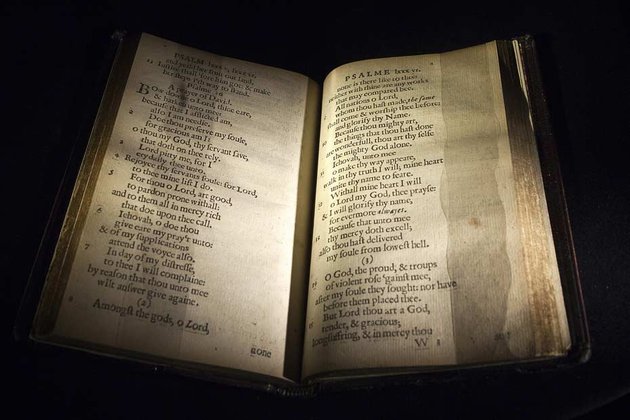 PSALME lxxxv, lxxxvi.
and prayse
12 Iustice shall
his steps in way to stand,
Psalme 86
A Prayer of David.
Bow downe o Lord thine eare,
& hark unto mee:
because that I afflicted am,
also I am needie.
2 Doe thou preserve my soule,
for gracious am I:
o thou my God, thy servant save,
that doth on thee rely.
3 Lord pitty me, for I
cry daily thee unto.
4 Rejoyce thy servants soule: for Lord,
to thee mine lift I do.
5 For thou o Lord, art good,
to pardon prone withall:
and to them all in mercy rich
that doe upon thee call.
6 Iehovah, o doe thou
give eare my pray'r unto:
& of my supplications
attend the voyce also.
7 In day of my distresse,
to thee I will complaine:
by reason that thou unto mee
wilt answer give againe.
(2)
8 Amongst the gods, o Lord,
none
PSALME lxxxvi.
none is there like to thee:
neither with thine are any works
that may compared bee.
9 All nations o Lord,
whom thou hast made, the same
shall come & worship thee before:
and glorify thy Name.
10 Because thou mighty art,
the things that thou hast done
are wonderfull, thou art thy selfe
the mighty God alone.
11 Iehovah, unto mee
o make thy way appeare,
walk in thy truth I will; mine heart
unite thy name to feare.
12 Withall mine heart I will
o Lord my God, thee prayse:
& I will glorify thy name,
for evermore alwayes.
13 Because that unto mee
thy mercy doth excell;
also thou hast delivered
my soule from lowest hell.
(3)
14 O God, the proud, & troups
of violent rose 'gainst mee,
after my soule they sought: nor have
before them placed thee.
15 But Lord thou art a God,
tender, & gracious;
longsuffring, & in mercy thou
W